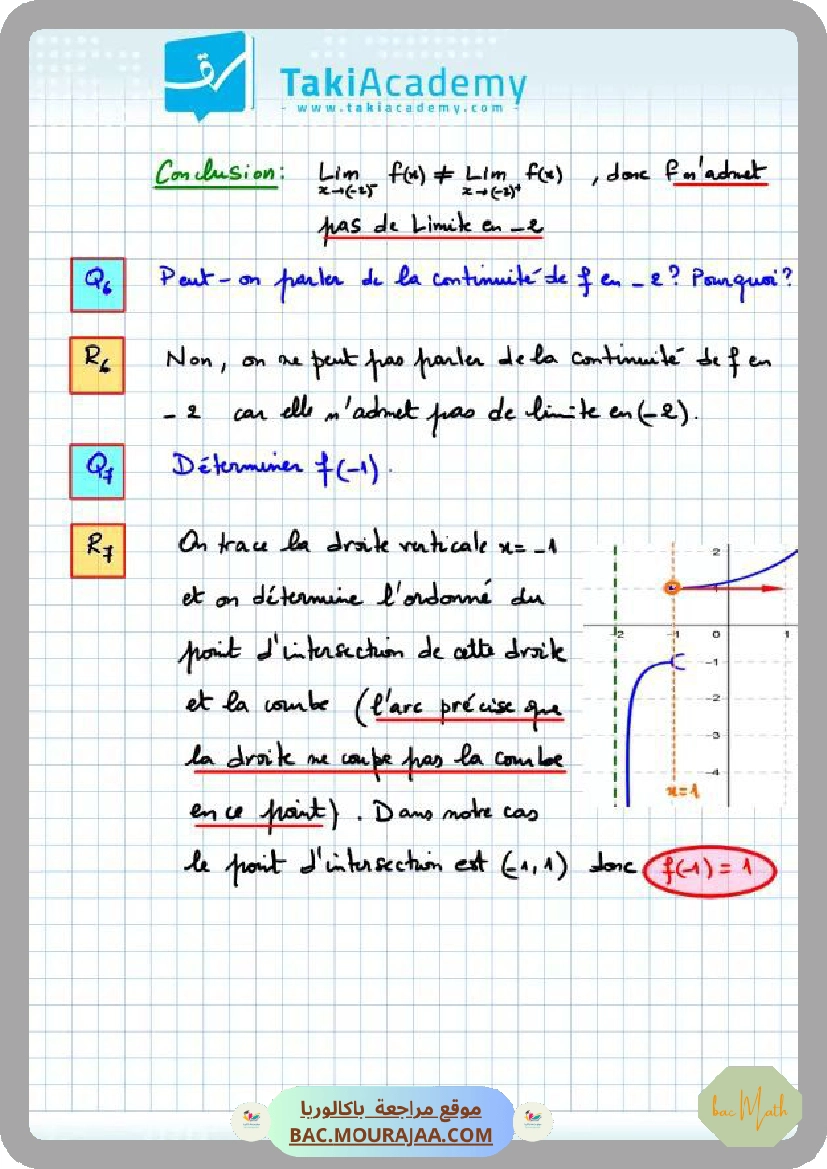 TakiAcademy
- www.takiacademy.com -
Conclusion: Lim x→(-2)⁻ f(x) ≠ Lim x→(-2)⁺ f(x) , donc f n'admet
pas de Limite en -2
Q6 Peut-on parler de la continuité de f en -2? Pourquoi?
R6 Non, on ne peut pas parler de la continuité de f en
-2 car elle n'admet pas de limite en (-2).
Q7 Déterminer f(-1).
R7 On trace la droite verticale x=-1
et on détermine l'ordonné du
point d'intersection de cette droite
et la courbe (l'arc précise que
la droite ne coupe pas la courbe
en ce point). Dans notre cas
le point d'intersection est (-1,1) donc f(-1) = 1
2
1
-2 -1 0 1
-1
-2
-3
-4
x=1
موقع مراجعة باكالوريا
BAC.MOURAJAA.COM
bac Math